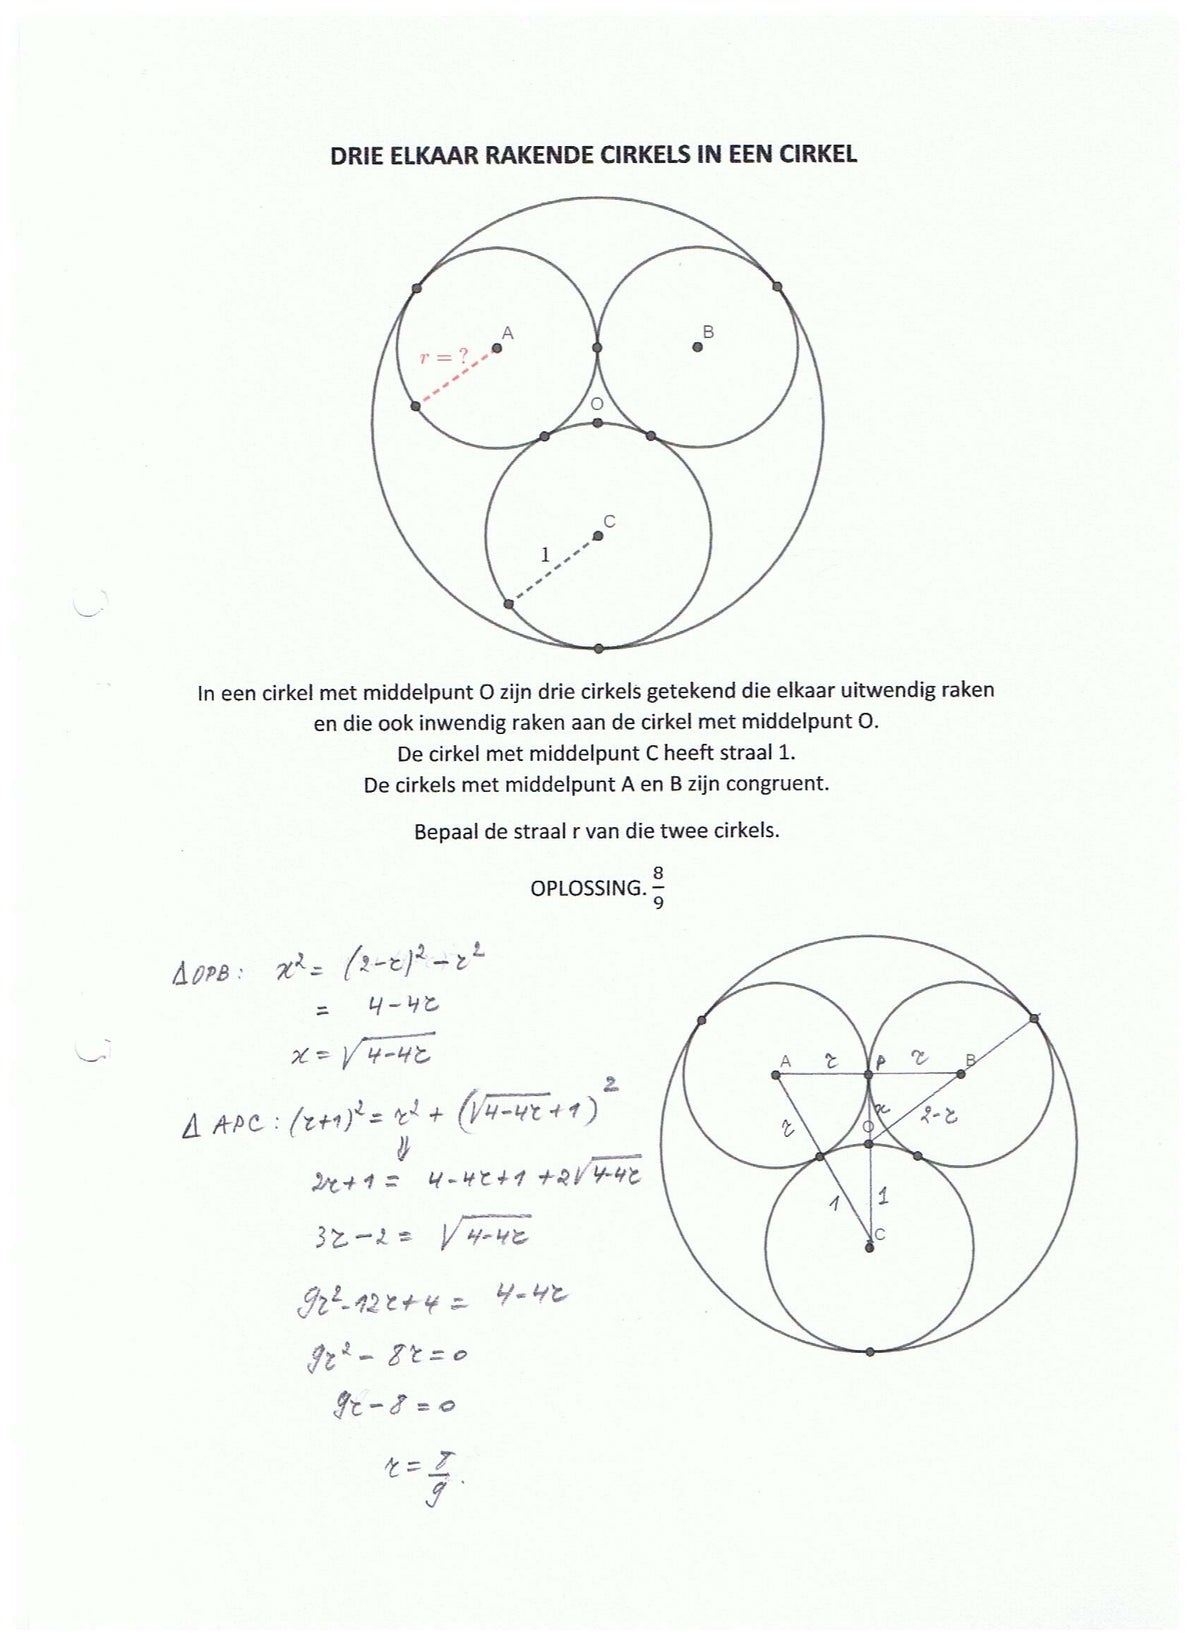 DRIE ELKAAR RAKENDE CIRKELS IN EEN CIRKEL
A
B
r = ?
O
C
1
In een cirkel met middelpunt O zijn drie cirkels getekend die elkaar uitwendig raken
en die ook inwendig raken aan de cirkel met middelpunt O.
De cirkel met middelpunt C heeft straal 1.
De cirkels met middelpunt A en B zijn congruent.
Bepaal de straal r van die twee cirkels.
OPLOSSING. 8/9
Δ OPB : x² = (2-r)² - r²
= 4-4r
x = √(4-4r)
Δ APC : (r+1)² = r² + (√(4-4r) + 1)²
⇓
2r+1 = 4-4r+1 +2√(4-4r)
3r-2 = √(4-4r)
9r²-12r+4 = 4-4r
9r² - 8r = 0
9r-8 = 0
r = 8/9.
A r P r B
x
O 2-r
r
1 1
C